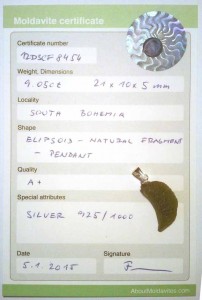 Moldavite certificate
Certificate number
Weight, Dimensions
9.05ct 21 x 10 x 5 mm
Locality
SOUTH BOHEMIA
Shape
ELIPSOID - NATURAL FRAGMENT
- PENDANT
Quality
A+
Special attributes
SILVER 925/1000
Date
Signature
5.1.2015
AboutMoldavites.com